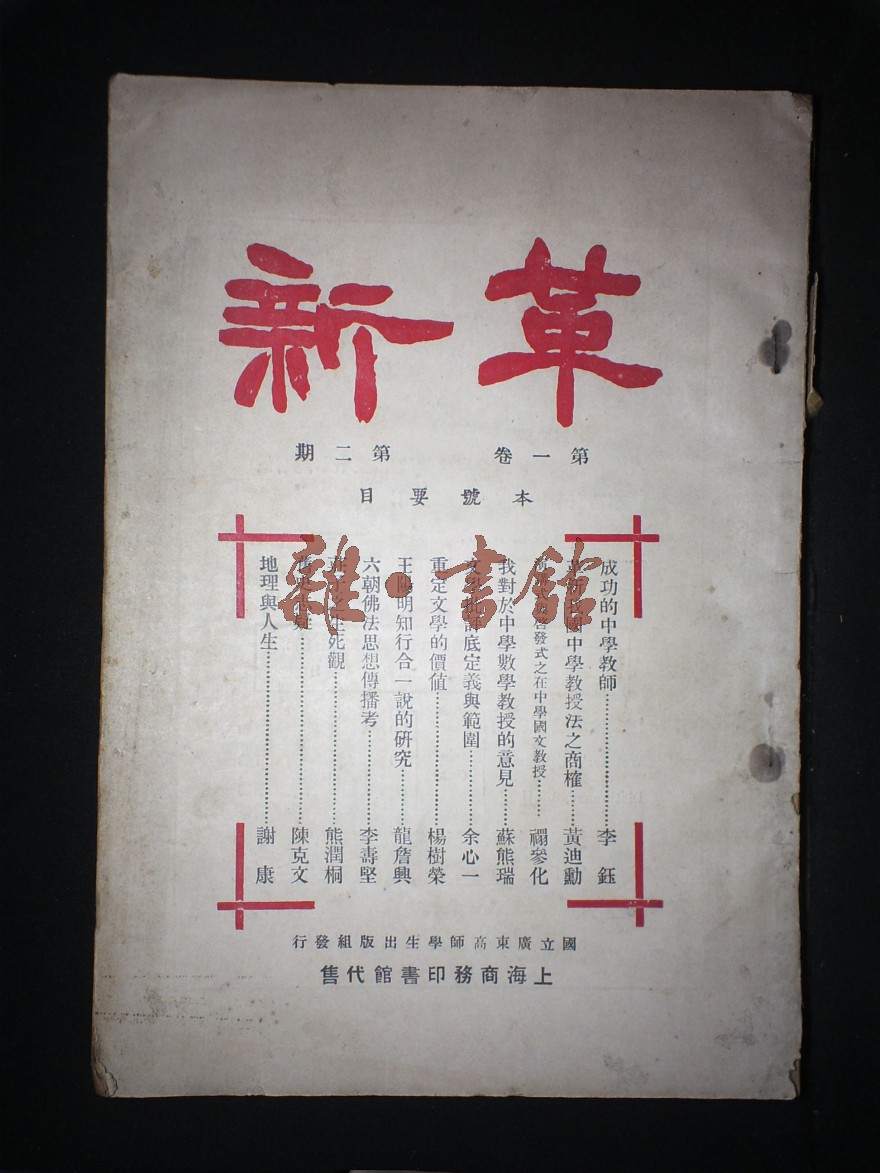 革新
第一卷 第二期
本號要目
成功的中學教師……李鈺
中學教授法之商榷……黃迪勳
啓發式之在中學國文教授……禤參化
我對於中學數學教授的意見……蘇熊瑞
底定義與範圍……余心一
重定文學的價值……楊樹榮
王陽明知行合一說的研究……龍詹興
六朝佛法思想傳播考……李壽堅
死觀……熊潤桐
……陳克文
地理與人生……謝康
國立廣東高師學生出版組發行
上海商務印書館代售
雜·書館